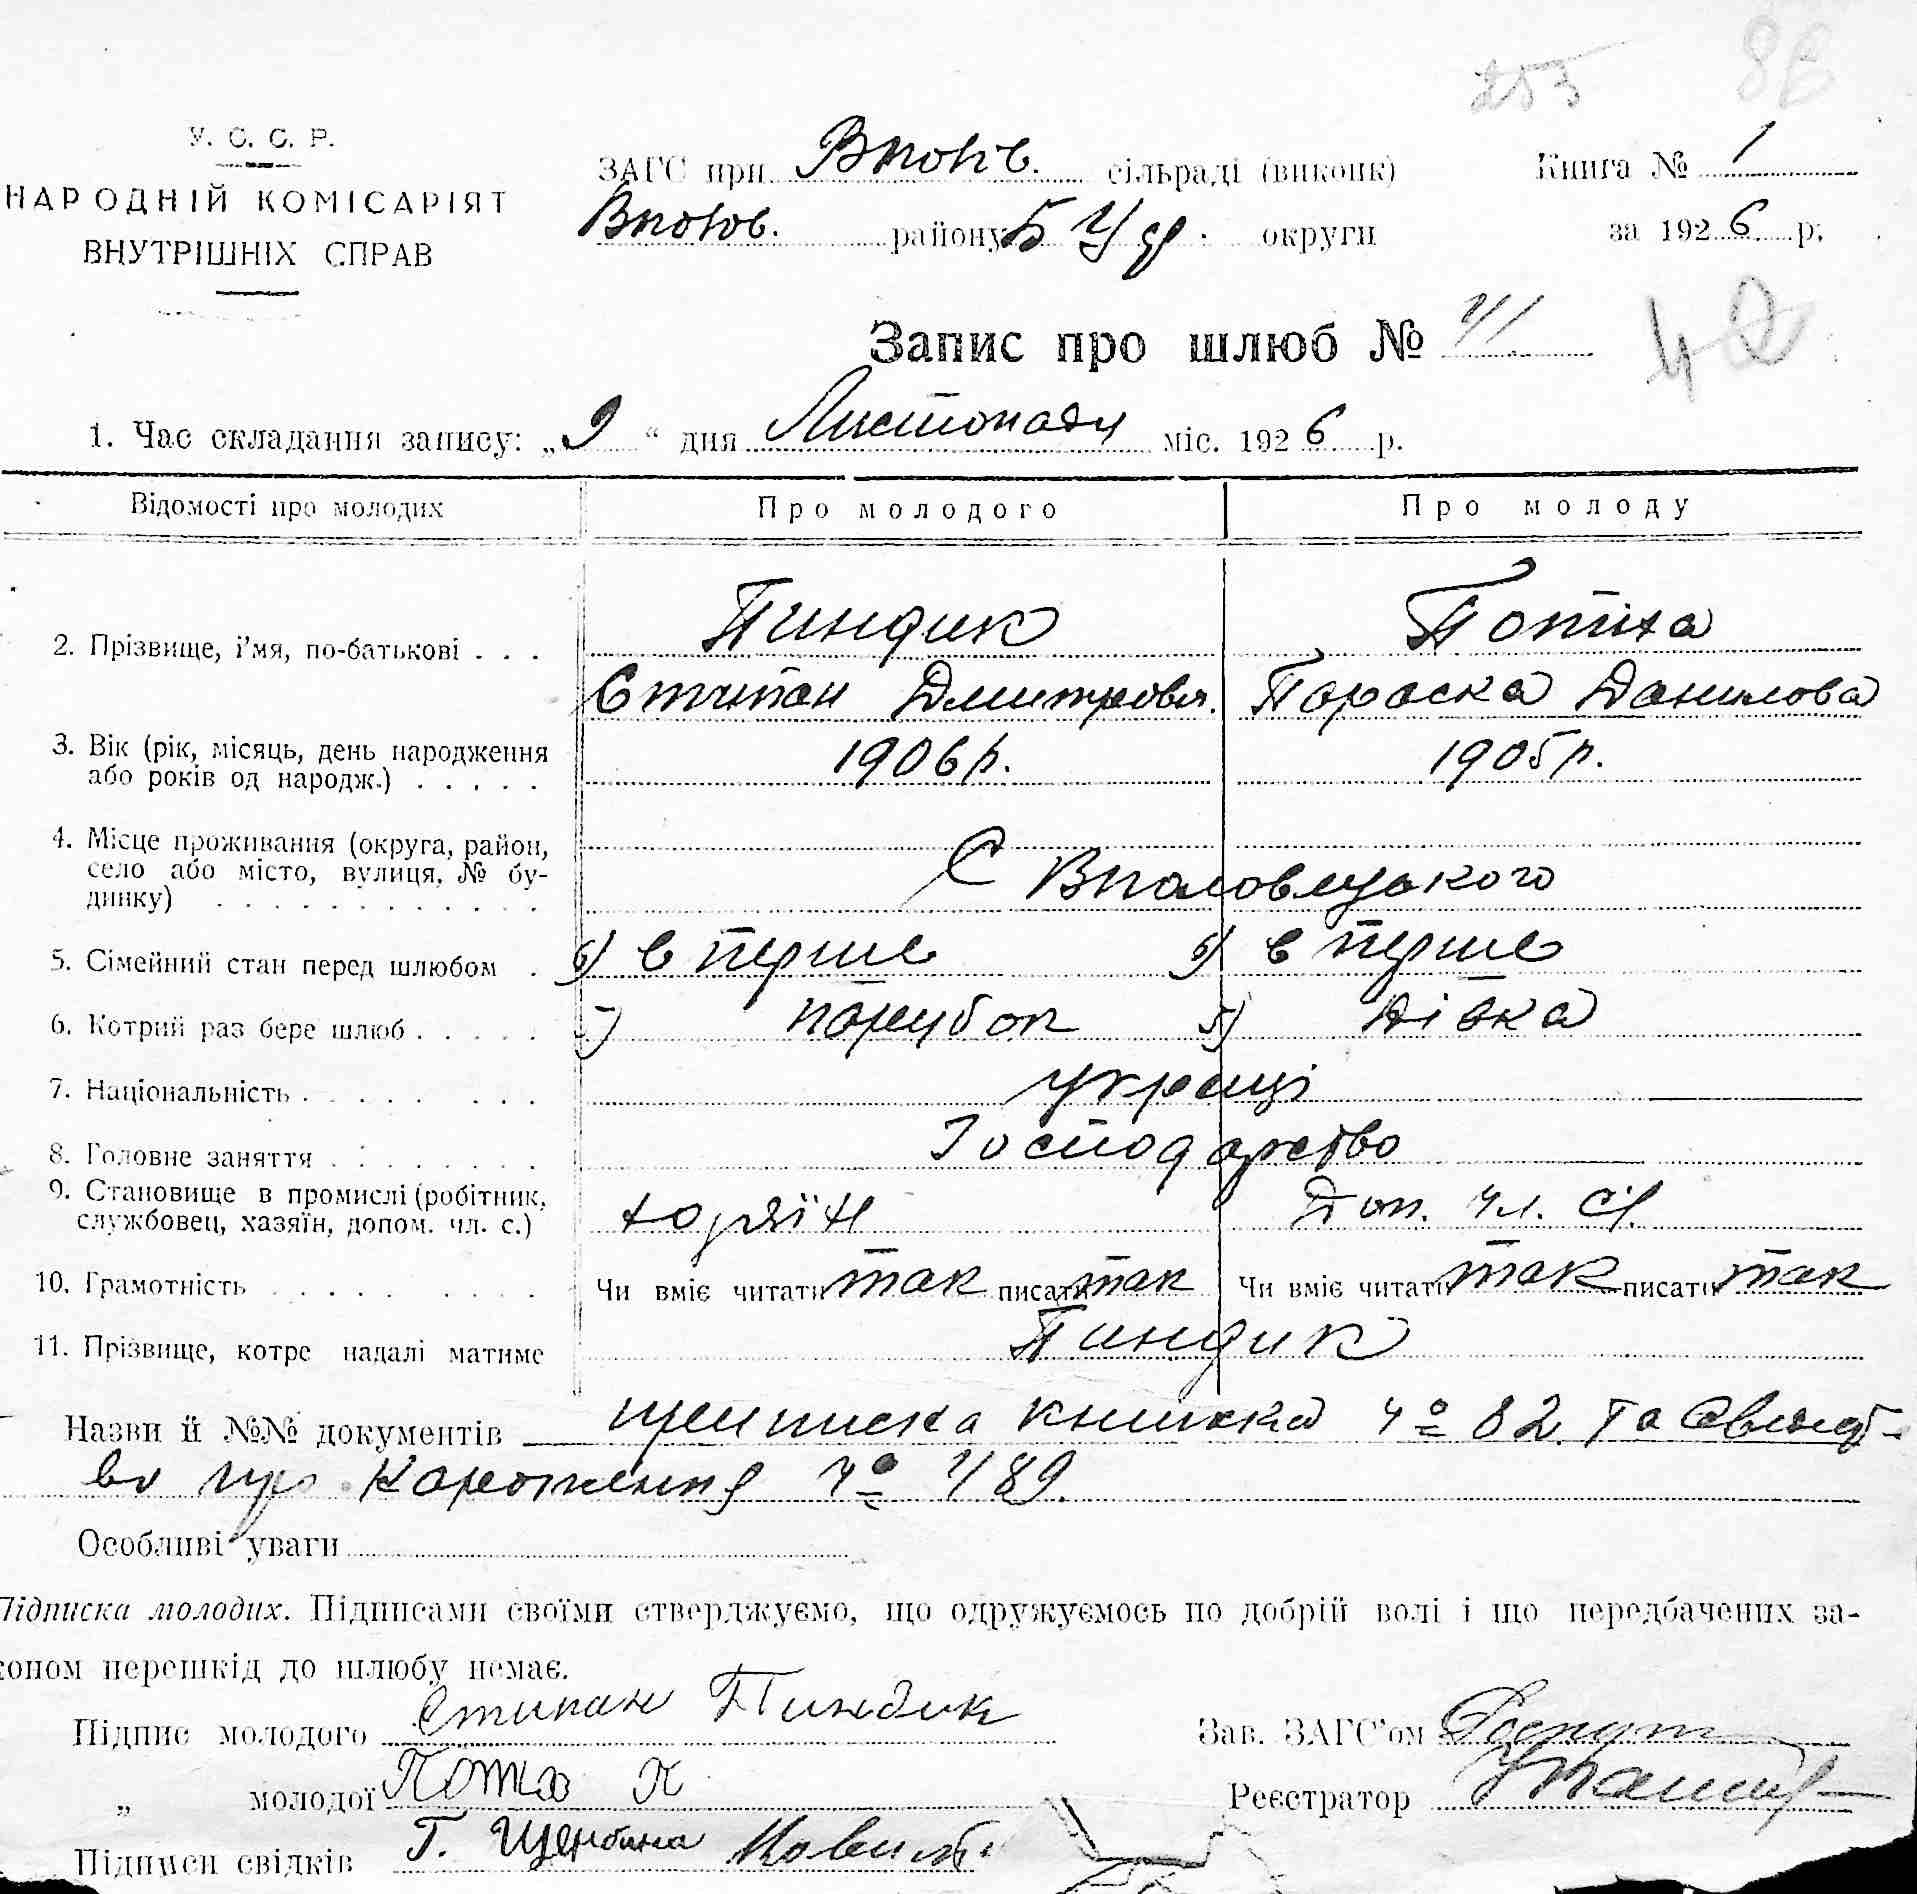 253 86
У. С. С. Р.
НАРОДНІЙ КОМІСАРІЯТ
ВНУТРІШНІХ СПРАВ
ЗАГС при Вполов. сільраді (виконк) Книга № 1
Вполов. району Б Ц округи за 1926 р.
Запис про шлюб № 41 42
1. Час складання запису: „9“ дня Листопаду міс. 1926 р.
Відомості про молодих Про молодого Про молоду
2. Прізвище, і'мя, по-батькові . . . Пиндик Потіха
Степан Дмитровв. Параска Данилова
3. Вік (рік, місяць, день народження
або років од народж.) . . . . . 1906 р. 1905 р.
4. Місце проживання (округа, район,
село або місто, вулиця, № бу-
динку) . . . . . . . . . . . . С Вполовецького
5. Сімейний стан перед шлюбом . 6) в перше 6) в перше
6. Котрий раз бере шлюб . . . . . 5) парубок 5) дівка
7. Національність . . . . . . . . україці
8. Головне заняття . . . . . . . . Господарство
9. Становище в промислі (робітник,
службовец, хазяїн, допом. чл. с.) хазяїн Доп. чл. сі.
10. Грамотність . . . . . . . . . Чи вміє читати так писати так Чи вміє читати так писати так
11. Прізвище, котре надалі матиме Пиндик
Назви й №№ документів приписка книжка № 82 та свидоц-
во про народження № 489.
Особливі уваги
Підписка молодих. Підписами своїми стверджуємо, що одружуємось по добрій волі і що передбачених за-
коном перешкід до шлюбу немає.
Підпис молодого Степан Пиндик Зав. ЗАГС'ом
„ молодої Потіха П Реєстратор
Підписи свідків Г. Щербина